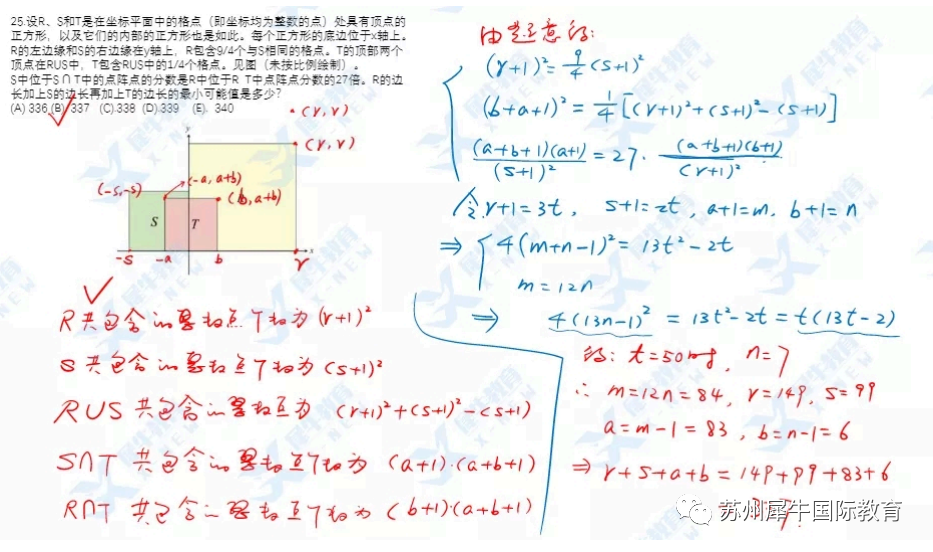 25.设R、S和T是在坐标平面中的格点（即坐标均为整数的点）处具有顶点的
正方形，以及它们的内部的正方形也是如此。每个正方形的底边位于x轴上。
R的左边缘和S的右边缘在y轴上，R包含9/4个与S相同的格点。T的顶部两个
顶点在RUS中，T包含RUS中的1/4个格点。见图（未按比例绘制）。
S中位于S∩T中的点阵点的分数是R中位于R T中点阵点分数的27倍。R的边
长加上S的边长再加上T的边长的最小可能值是多少?
(A) 336 (B) 337 (C).338 (D).339 (E). 340
(r, r)
y
(r, r)
(-s,-s)
(-a, a+b)
(b, a+b)
S
T
x
-s
-a
b
r
R共包含的整数点个数为 (r+1)²
S共包含的整数点个数为 (s+1)²
RUS 共包含的整数点为 (r+1)²+(s+1)²-(s+1)
S∩T 共包含的整数点个数为 (a+1)·(a+b+1)
R∩T 共包含的整数点个数为 (b+1)·(a+b+1)
由题意得:
(r+1)²=9/4(s+1)²
(b+a+1)²=1/4[(r+1)²+(s+1)²-(s+1)]
(a+b+1)(a+1)/(s+1)²=27·(a+b+1)(b+1)/(r+1)²
令r+1=3t, s+1=2t, a+1=m, b+1=n
⇒ 4(m+n-1)²=13t²-2t
m=12n
⇒ 4(13n-1)²=13t²-2t=t(13t-2)
得: t=50时, n=7
∴ m=12n=84, r=149, s=99
a=m-1=83, b=n-1=6
⇒ r+s+a+b=149+99+83+6
苏州犀牛国际教育
犀牛教育
X-NEW